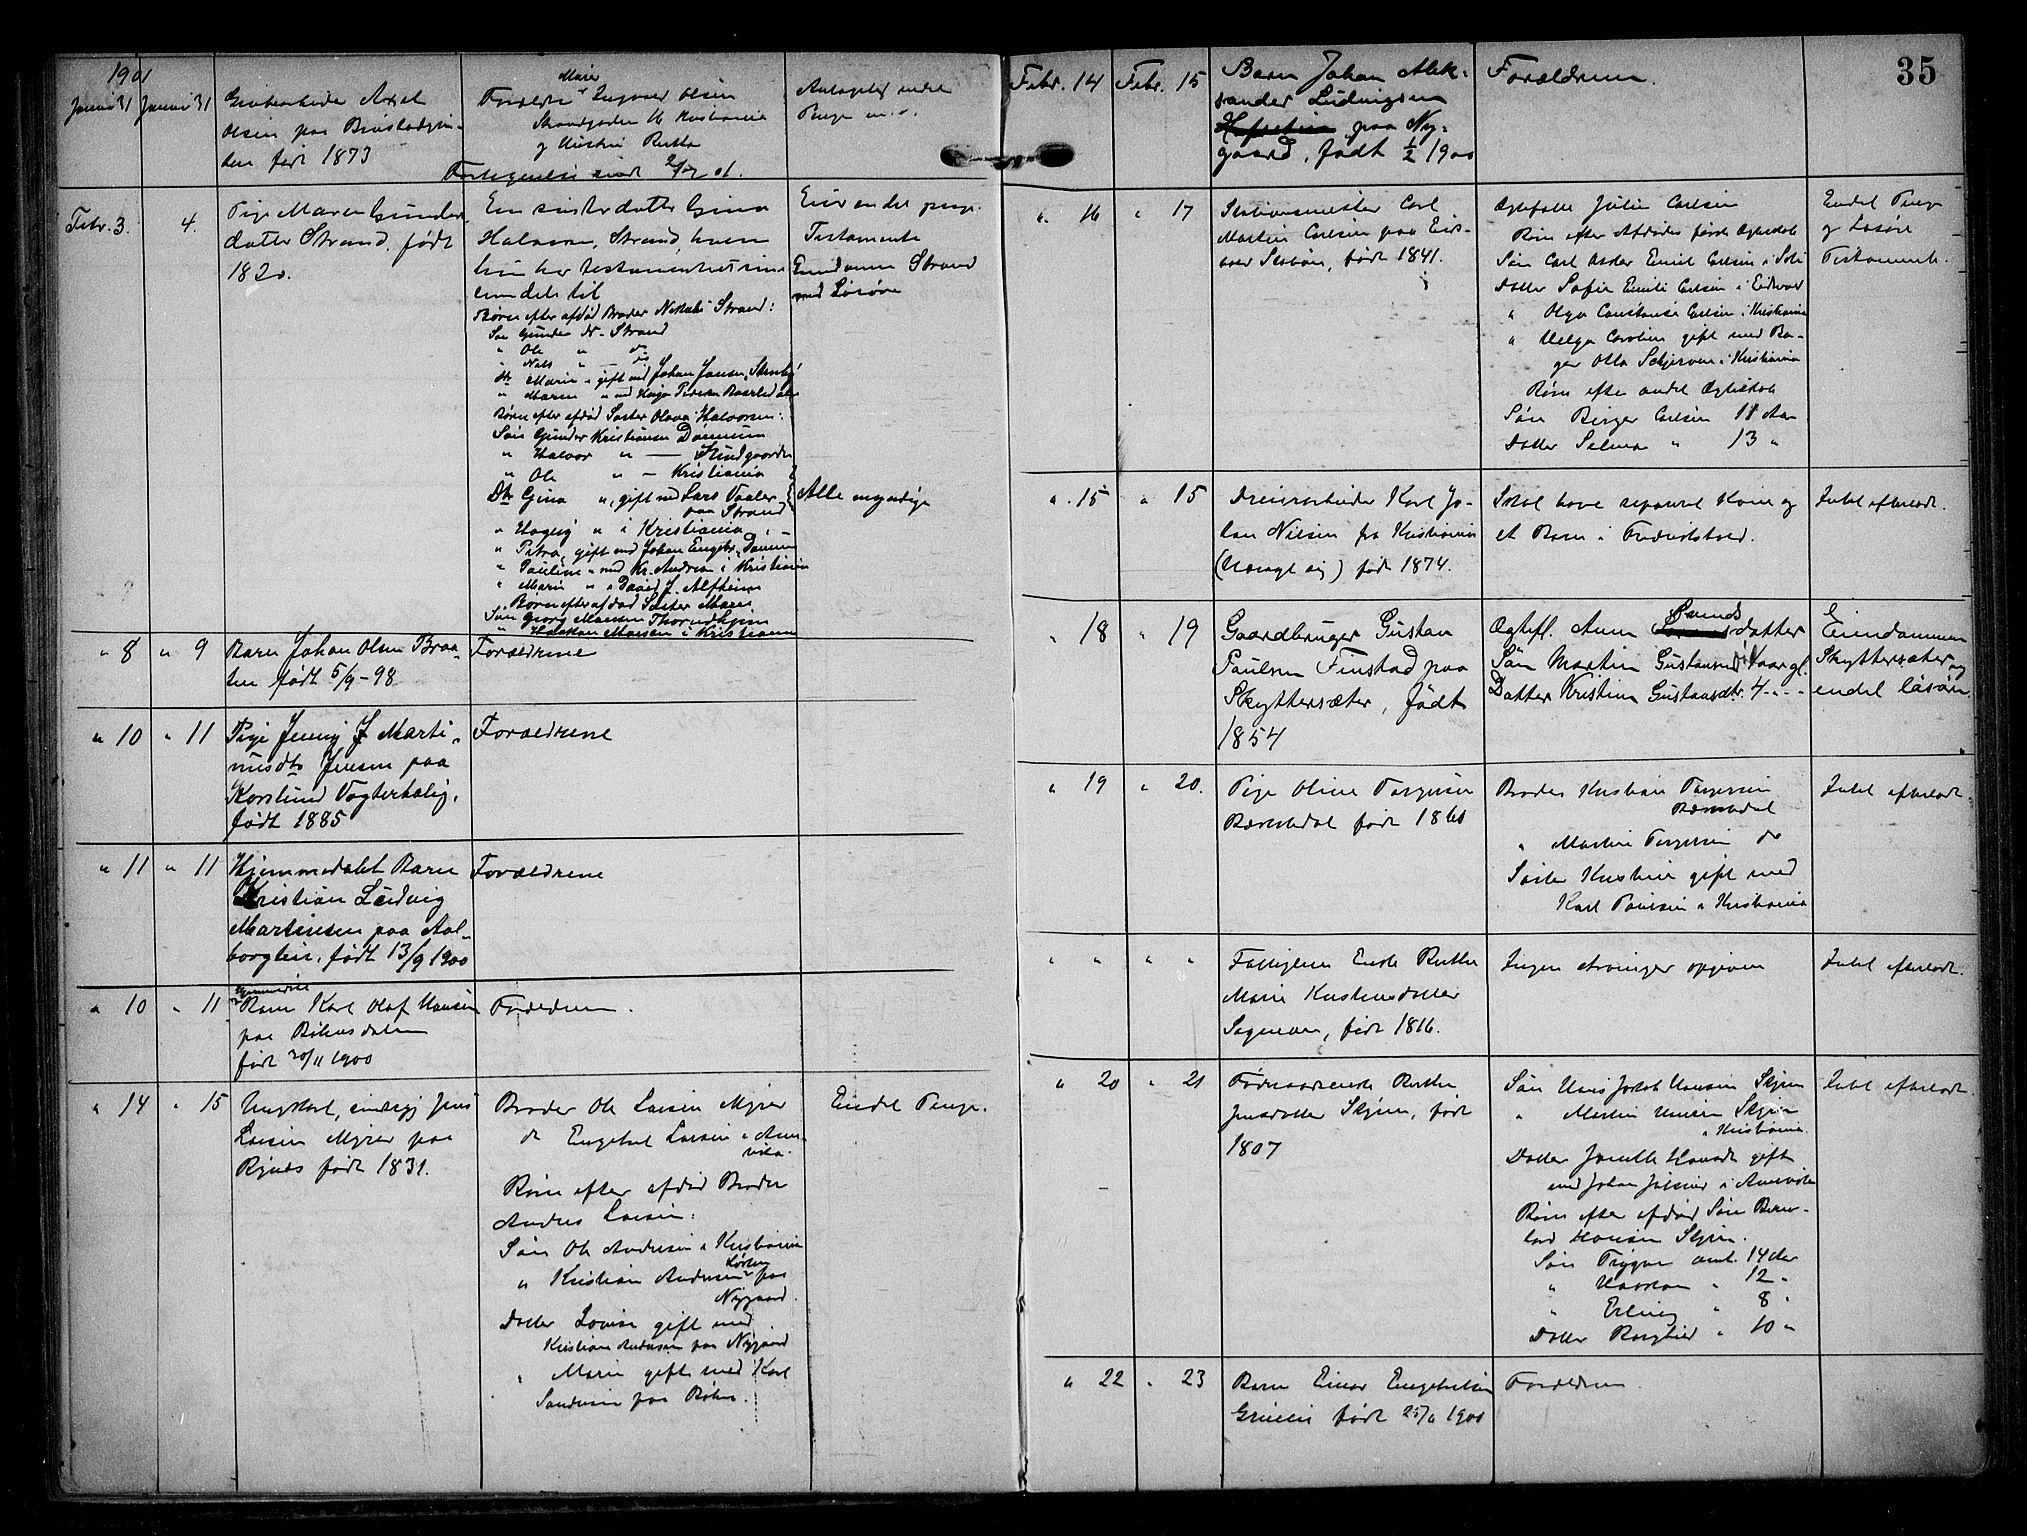 1901
Januar 31
Januar 31
Grubearbeider Axel
Olsen paa
født 1873
Marie
Forældre Ingvar Olsen
Kristiania
og Hustru
Antagelig endel
Penge m.v.
Fortegnelse
Febr. 3.
4.
Pige Maren Gunder
datter Strand, født
1820.
En søsterdatter Gina
Halvorsen, Strand, hvem
hun har testamenteret sine
Eiendele til
Børn efter afdød Broder Strand:
Søn Gunder N. Strand
" Ole " do
" Nils " — do
Dtr Marie " gift med Johan Jansen,
" Maren " med Pedersen
Børn efter afdød Søster Olava Halvorsen:
Søn Gunder Kristiansen
" Halvor " —
" Ole " — Kristiania
Dtr Gina ", gift med Lars Vaaler
paa Strand
" Hagbg " i Kristiania
" Petra, gift med Johan Engebr.
" Pauline " med Kr. Andersen i Kristiania
" Marie " " David J. Alfheim
Børn efter afdød Søster Maren
Søn Georg Monsen Throndhjem
" Haakon Monsen i Kristiania
Eier endel penge.
Testamente
Eiendommen Strand
med Løsøre
Alle myndige
" 8
" 9
Barn Johan Olsen Braa-
ten født 5/9-98
Forældrene
" 10
" 11
Pige Jenny J Marti-
nusdtr Jensen paa
Korslund Vogterbolig,
født 1885
Forældrene
" 11
" 11
Hjemmedøbt Barn
Kristian Ludvig
Martinsen paa Aal-
borgeie, født 13/9 1900
Forældrene
" 10
" 11
Hjemmedøbt
Barn Karl Olaf Hansen
paa Bøhnsdalen
født 20/11 1900
Forældrene.
" 14
" 15
Ungkarl, Jens
Larsen Myrer paa
født 1831.
Broder Ole Larsen Myrer
do Engebret Larsen i Ame-
rika.
Børn efter afdød Broder
Anders Larsen:
Søn Ole Andersen i Kristiania
" Kristian Andersen paa
Nygaard.
Datter Lovise gift med
Kristian Andersen paa Nygaard
" Marie gift med Karl
Sandersen paa Bøhn.
Endel Penge.
35
Febr. 14
Febr. 15
Barn Johan Alek-
sander Ludvigsen
paa Ny-
gaard, født 1/2 1900
Forældrene.
" 16
" 17
Stationsmester Carl
Martin Carlsen paa Eids-
vold Station, født 1841.
Ægtefælle Julie Carlsen
Børn efter Afdødes første Ægteskab
Søn Carl Emil Carlsen i
Datter Sofie Emilie Carlsen i Eidsvold
" Olga Constanse Carlsen i Kristiania
" Helga Caroline gift med Ba-
ger Otto i Kristiania
Børn efter andet Ægteskab
Søn Birger Carlsen 11 Aar
Datter Selma " 13 "
Endel Penge
og Løsøre
Testamente.
" 15
" 15
Karl Jo-
han Nilsen fra Kristiania
født 1874.
Skal have separeret Kone og
et Barn i Fredrikstad.
Intet efterladt.
" 18
" 19
Gaardbruger Gustav
Paulsen Finstad paa
Skyttersæter, født
1854
Ægtefl. Anne datter
Søn Martin Gustavsen Aar gl.
Datter Kristine Gustavsdtr. 4 - " -
Eiendommen
Skyttersæter og
endel løsøre.
" 19
" 20.
Pige Oline Torgersen
født 1860
Broder Kristian Torgersen
" Martin Torgersen do
Søster Kristine gift med
Karl Paulsen i Kristiania
Intet efterladt.
" "
" "
Fattiglem Enke Berthe
Marie Kristensdatter
født 1816.
Ingen Arvinger opgiven
Intet efterladt.
" 20
" 21
Føderaadsenke Berthe
Jensdatter Skjen, født
1807
Søn Hans Jakob Hansen Skjen
" Martin Hansen Skjen
i Kristiania.
Datter Jonette gift
med Johan i Amerika
Børn efter afdød Søn Bern-
hard Hansen Skjen.
Søn Trygve omt. 14 Aar
" Haakon " 12 "
" Erling " 8 "
Datter Borghild " 10 "
Intet efterladt.
" 22
" 23
Barn Einar Engebretsen
født 25/ 1900
Forældrene.